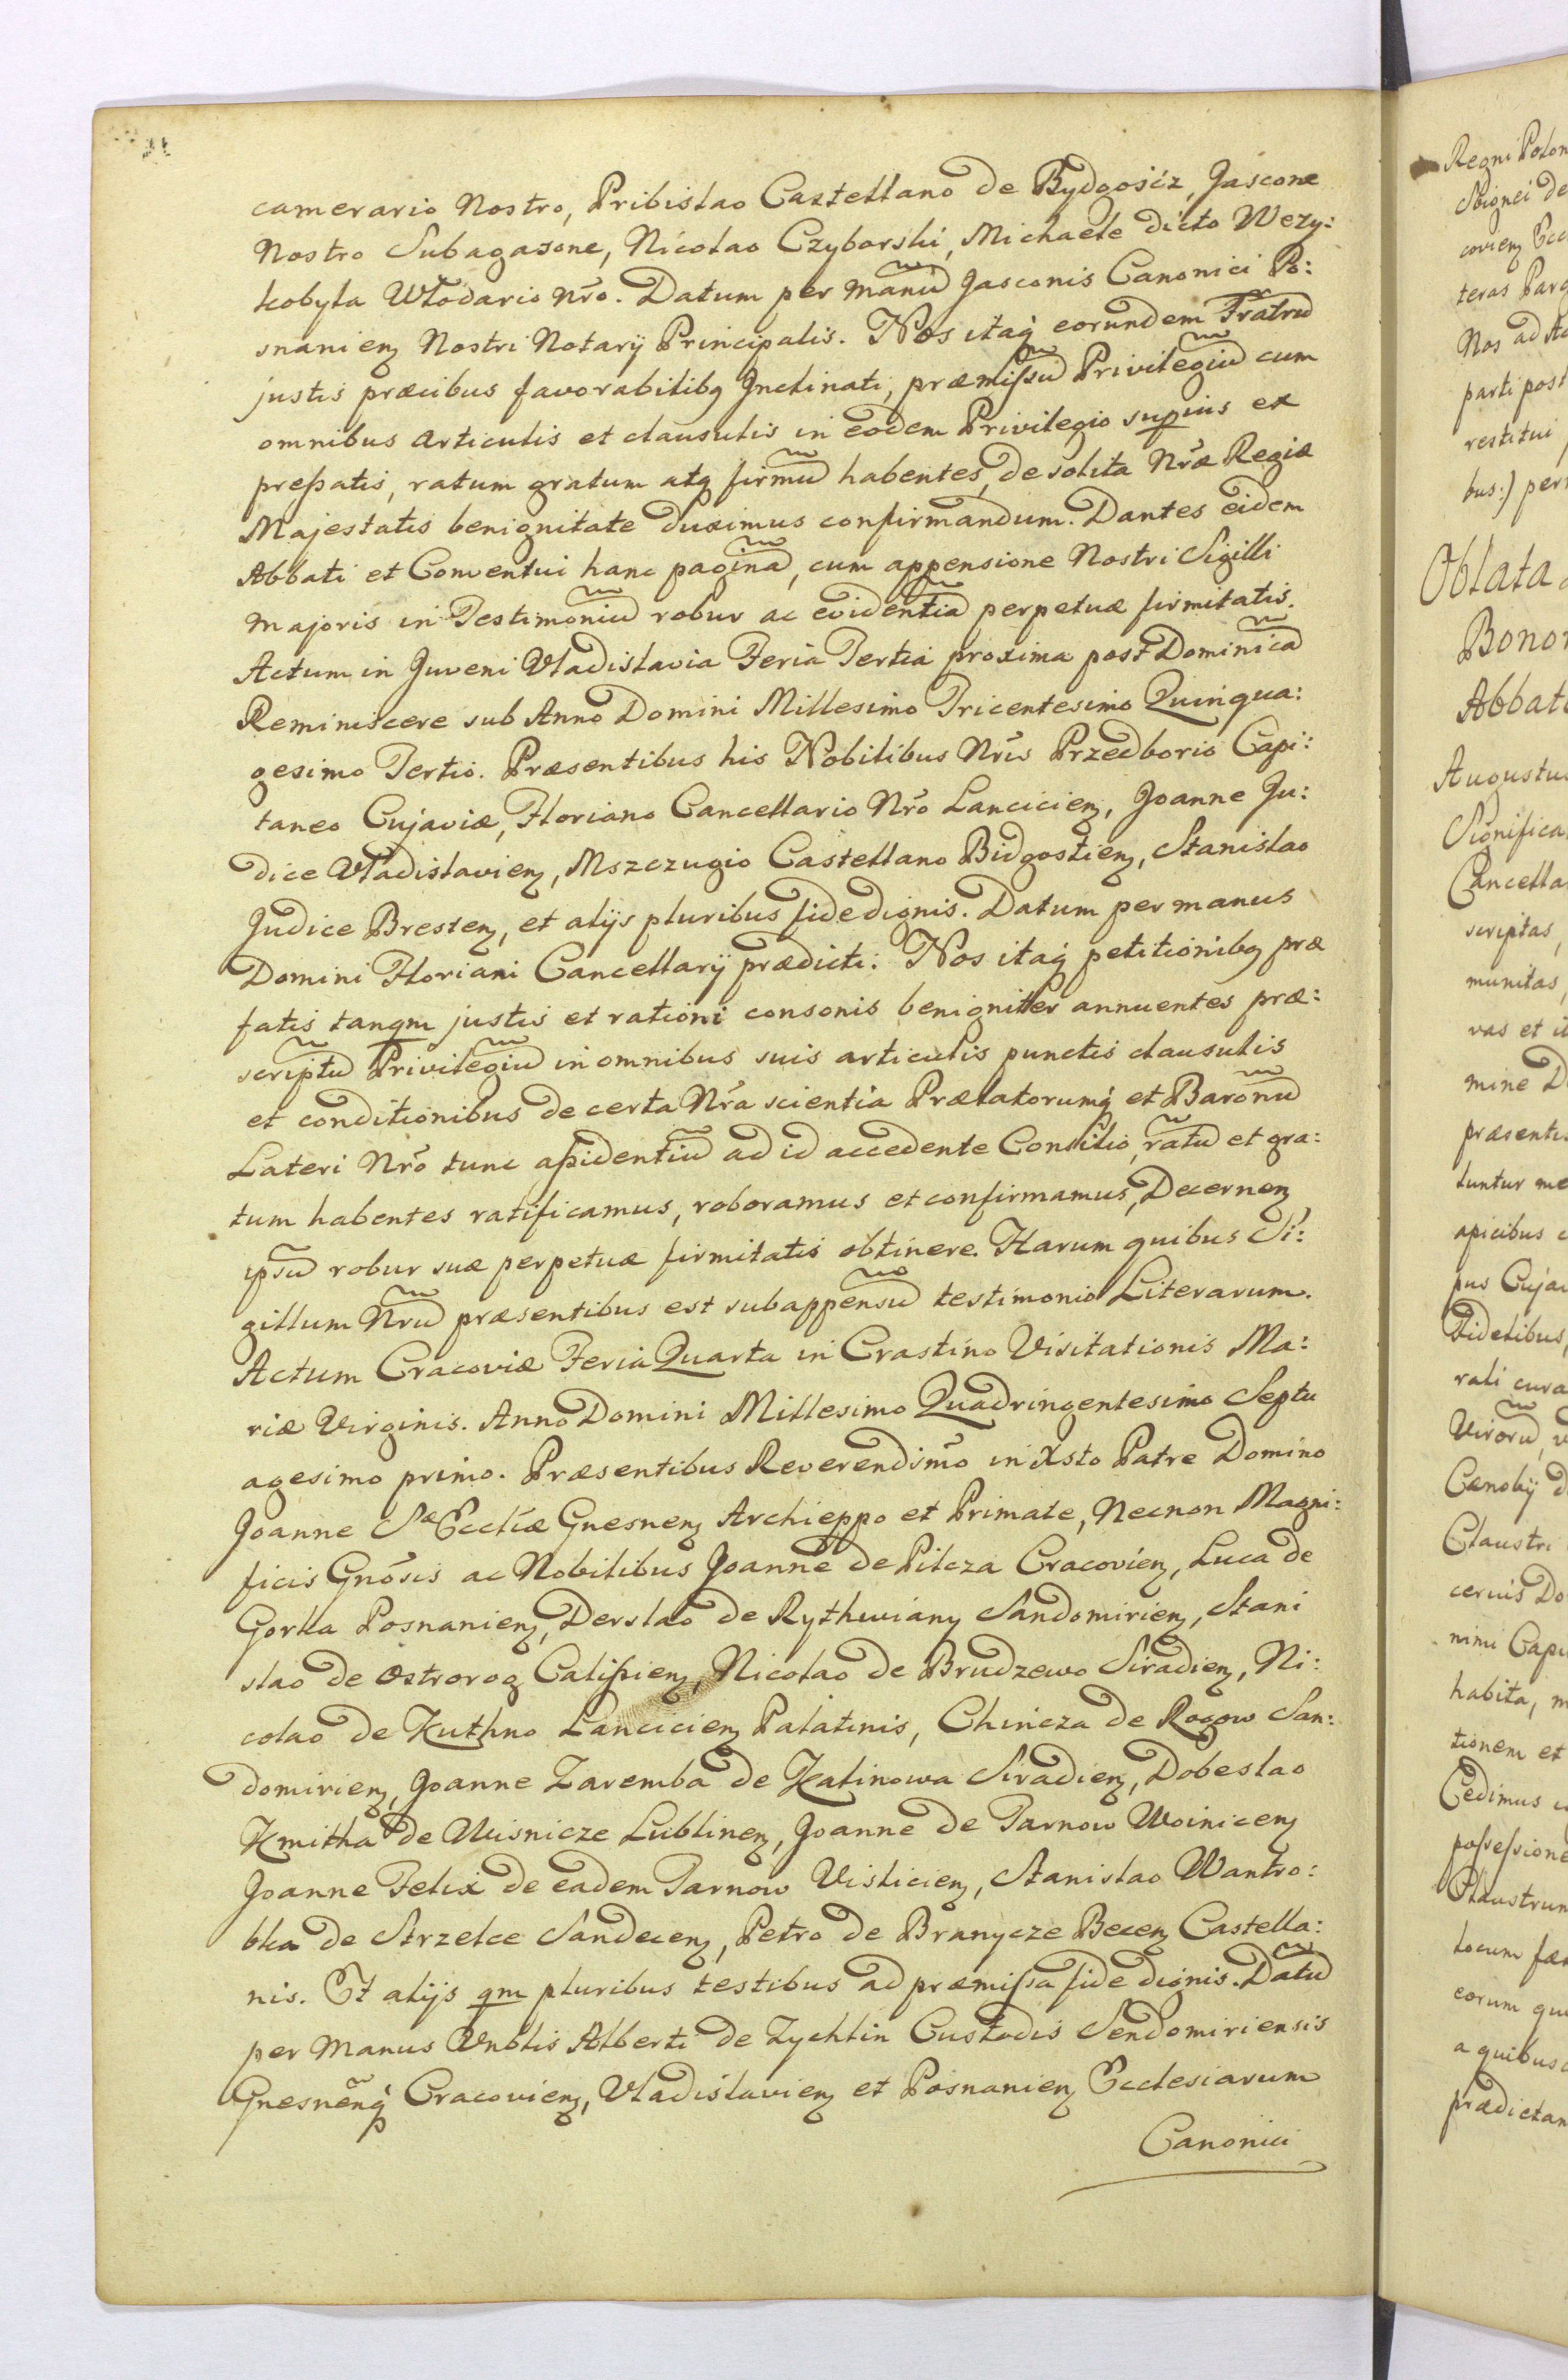 camerario Nostro, Pribislao Castellano de Bydgosicz, Jascone
Nostro Subagasone, Nicolao Czyborski, Michaele dicto Wezy:
kobyla Wlodario nr̃o. Datum per manũ Jasconis Canonici Po:
snanien̄ Nostri Notarij Principalis. Nos itaq̷ eorundem Fratrũ
justis præcibus favorabilibq Inclinati, præmissũ Privilegiũ cum
omnibus articulis et clausulis in eodem Privilegio supius ex
pressatis, ratum gratum atq̷ firmũ habentes, de solita Nr̃æ Regiæ
Majestatis benignitate duximus confirmandum. Dantes eidem
Abbati et Conventui hanc paginã, cum appensione Nostri Sigilli
majoris in Testimoniũ robur ac evidentiã perpetuæ firmitatis.
Actum in Juveni Vladislavia Feria Tertia proxima post Dominicã
Reminiscere sub Anno Domini Millesimo Tricentesimo Quinqua:
gesimo Tertio. Præsentibus his Nobilibus Nr̃is Przedborio Capi:
taneo Cujaviæ, Floriano Cancellario Nr̃o Lancicien̄, Joanne Ju:
dice Vladislavien̄, Mszczugio Castellano Bidgostien̄, Stanislao
Judice Bresten̄, et alijs pluribus fidedignis. Datum per manus
Domini Floriani Cancellarij prædicti. Nos itaq̷ petitionibq præ
fatis tanqm justis et rationi consonis benigniter annuentes præ:
scriptũ Privilegiũ in omnibus suis articulis punctis clausulis
et conditionibus de certa Nr̃a scientia Prælatorumq̷ et Baronũ
Lateri Nr̃o tunc assidentiũ ad id accedente Consilio, ratũ et gra:
tum habentes ratificamus, roboramus et confirmamus, Decernen̄
ipsũ robur suæ perpetuæ firmitatis obtinere. Harum quibus Si:
gillum Nrũ præsentibus est subappensũ testimonio Literarum.
Actum Cracoviæ Feria Quarta in Crastino Visitationis Ma:
riæ Virginis. Anno Domini Millesimo Quadringentesimo Septu
agesimo primo. Præsentibus Reverendisiṁo in Xsto Patre Domino
Joanne Sæ Eccliæ Gnesnen̄ Archieppo et Primate, Necnon Magni:
ficis Gnõsis ac Nobilibus Joanne de Pilcza Cracovien̄, Luca de
Gorka Posnanien̄, Derslao de Rythwiany Sandomirien̄, Stani
slao de Ostrorog Calissien̄, Nicolao de Brudzewo Siradien̄, Ni:
colao de Kuthno Lancicien̄ Palatinis, Chincza de Rogow San:
domirien̄, Joanne Zaremba de Kalinowa Siradien̄, Dobeslao
Kmitha de Wisnicze Lublinen̄, Joanne de Tarnow Woinicen̄
Joanne Felix de eadem Tarnow Vislicien̄, Stanislao Wantro:
bka de Strzelce Sandecen̄, Petro de Brnycze Becen̄ Castella:
nis. Et alijs qm pluribus testibus ad præmissa fide dignis. Datũ
per Manus Vnblis Alberti de Zychlin Custodis Sendomiriensis
Gnesnen̄q̷ Cracovien̄, Vladislavien̄ et Posnanien̄ Ecclesiarum
Canonici
Regni Polon
covien̄ Ecc
Nos ad
parti post
restitui
bus:) per
Oblata
Bonor
Abbat
Augustus
Significa
Cancella
scriptas,
munitas,
vas et
mine D
præsenti
tuntur me
apicibus
pus Cuja
Fidelibus,
rali cura
Virorũ,
Cænobij d
Claustri
nimi Capi
habita,
tionem et
Cedimus
possessione
Claustrum
locum
eorum qu
a quibus
prædictan